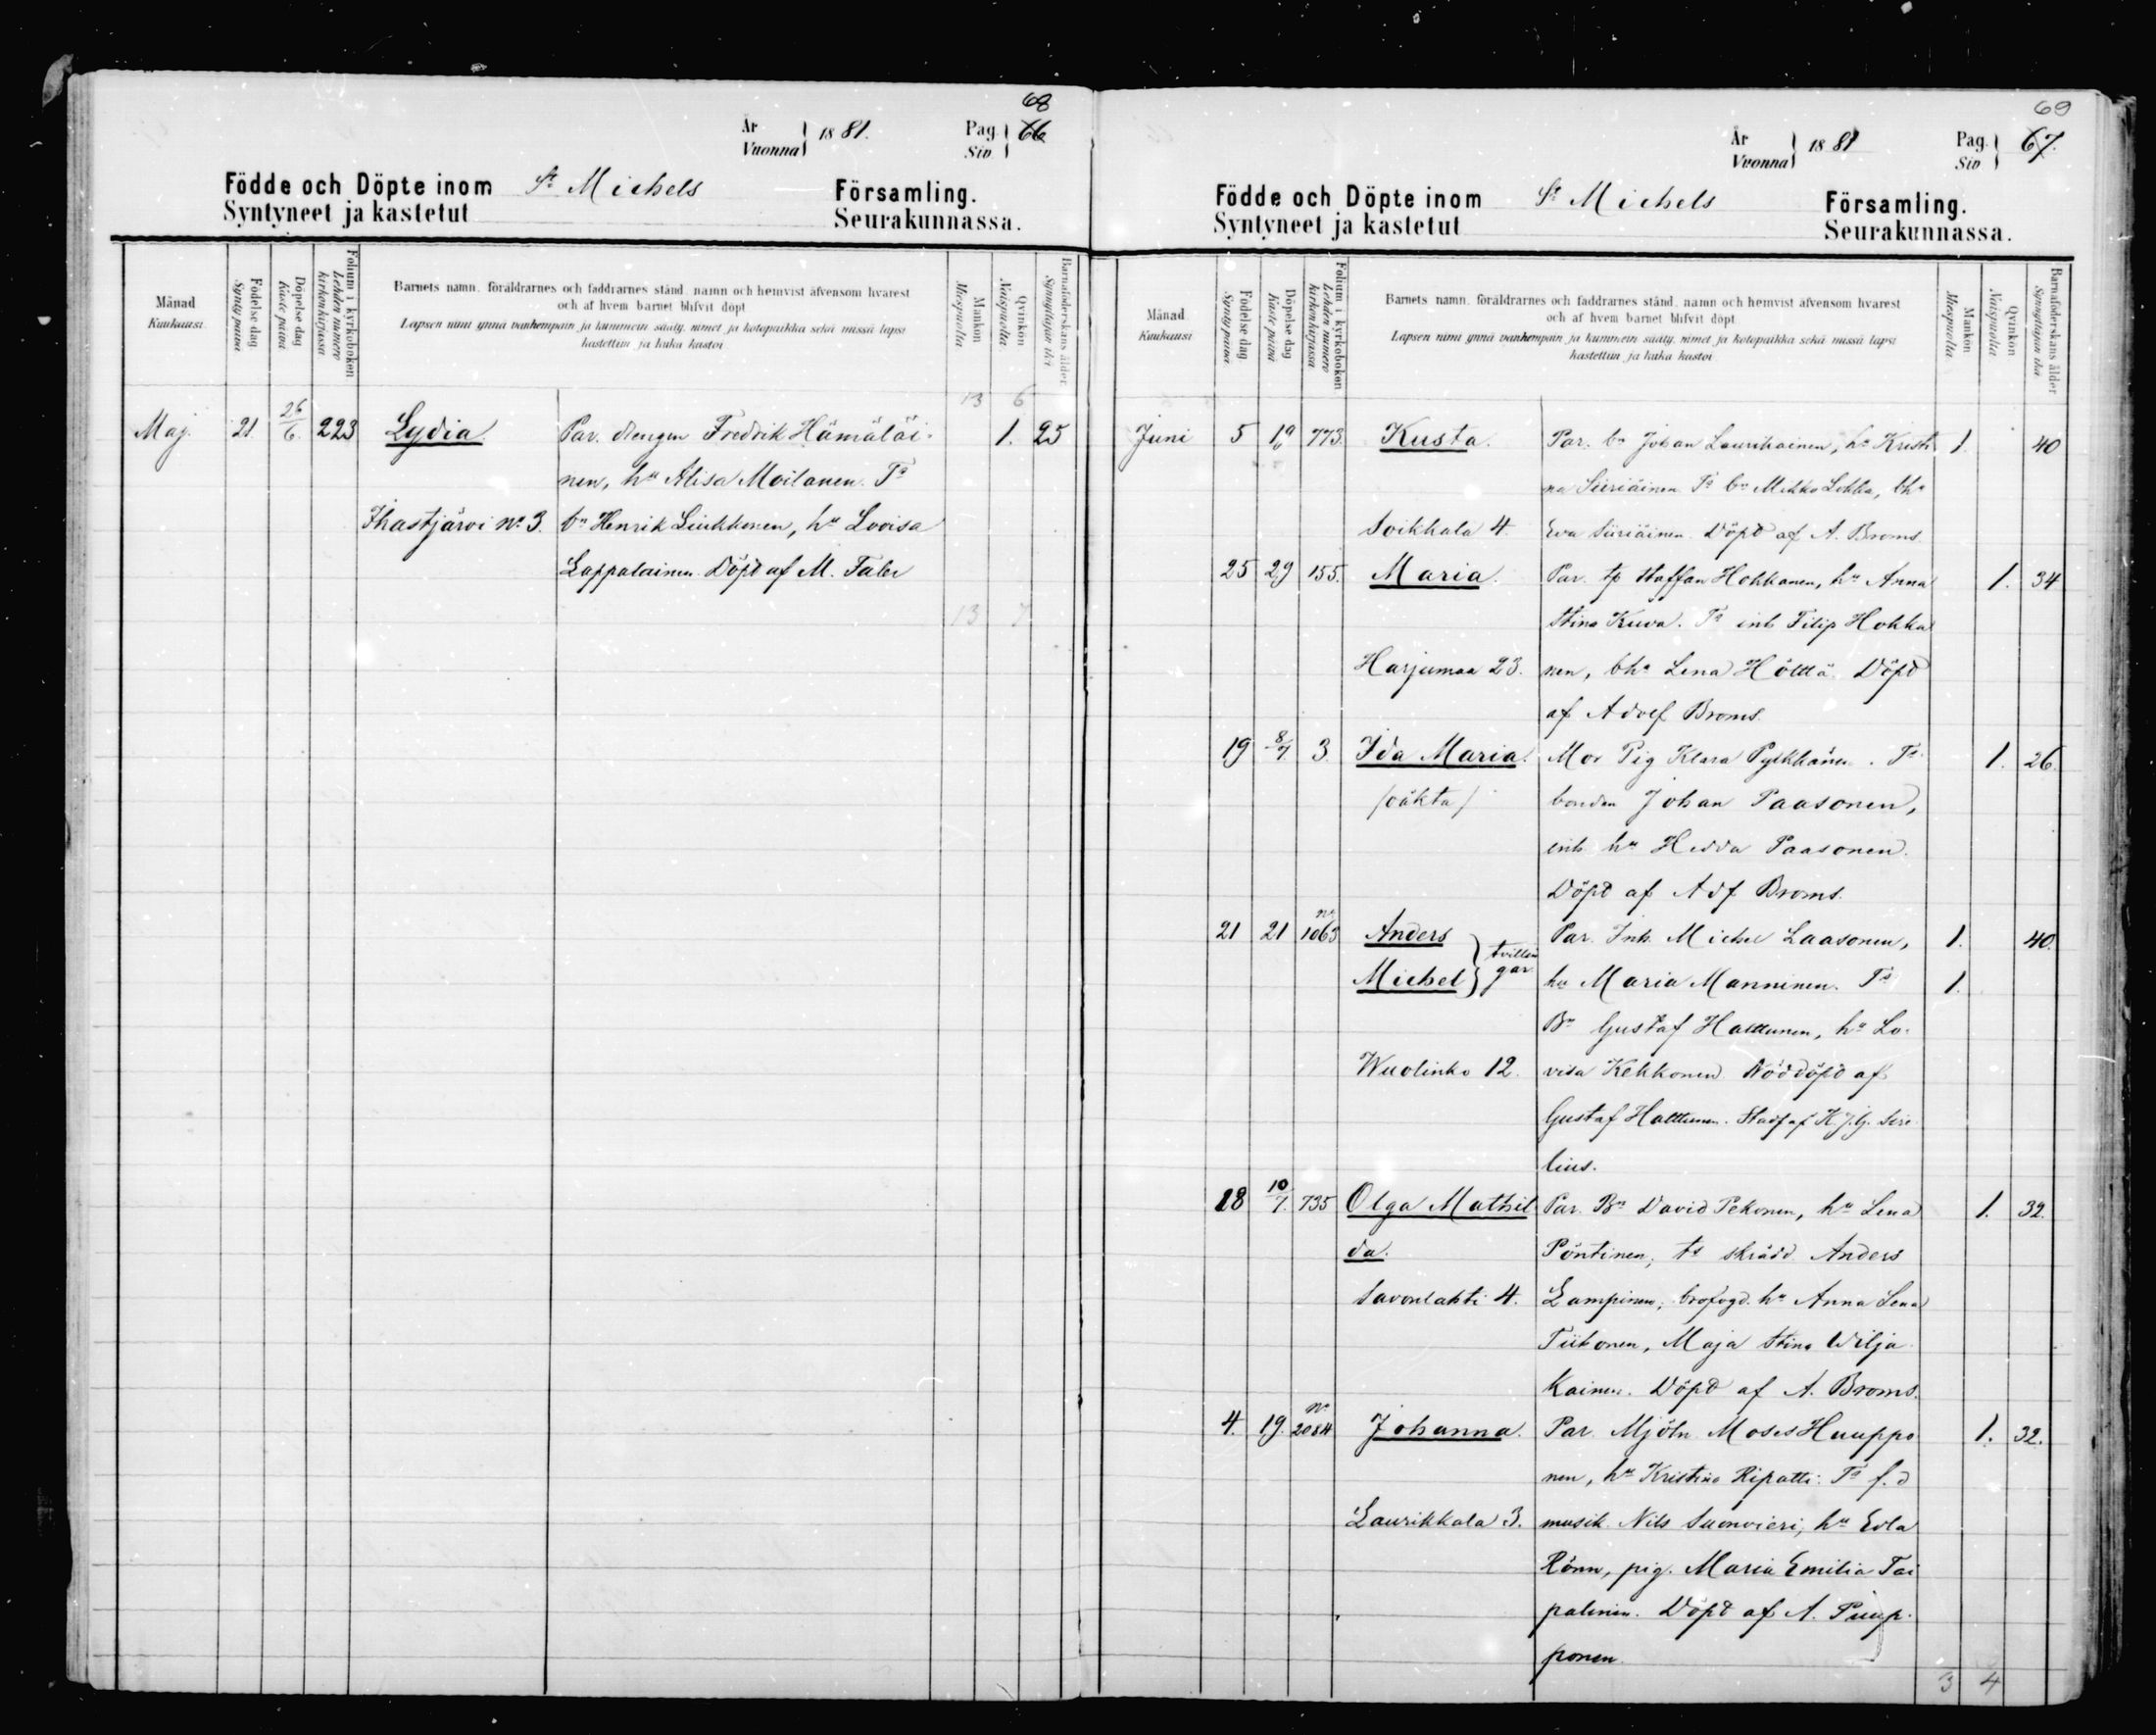 68
År
Vuonna } 1881.
Pag.
Siv } 66
Födde och Döpte inom St Michels Församling.
Syntyneet ja kastetut Seurakunnassa.
Månad
Kuukausi
Födelse dag
Synty päivä
Döpelse dag
Kaste päivä
Folium i kyrkoboken
Lehden numero
kirkonkirjassa
Barnets namn, föräldrarnes och faddrarnes stånd, namn och hemvist äfvensom hvarest
och af hvem barnet blifvit döpt
Lapsen nimi ynnä vanhempain ja kummein sääty, nimet ja kotopaikka sekä missä lapsi
kastettiin ja kuka kastoi
Mankön
Miespuolta
Qvinkön
Naispuolta
Barnaföderskans ålder
Synnyttäjän ikä
13 6
Maj. 21. 26/6. 223 Lydia. Par. drengen Fredrik Hämäläi- 1. 25
nen, hu Alisa Moilanen. Ts
Ihastjärvi No 3. bn Henrik Liukkonen, hu Lovisa
Lappalainen. Döpt af M. Faler
13 7
69
År
Vuonna } 1881
Pag.
Siv } 67.
Födde och Döpte inom St Michels Församling.
Syntyneet ja kastetut Seurakunnassa.
Månad
Kuukausi
Födelse dag
Synty päivä
Döpelse dag
Kaste päivä
Folium i kyrkoboken
Lehden numero
kirkonkirjassa
Barnets namn, föräldrarnes och faddrarnes stånd, namn och hemvist äfvensom hvarest
och af hvem barnet blifvit döpt
Lapsen nimi ynnä vanhempain ja kummein sääty, nimet ja kotopaikka sekä missä lapsi
kastettiin ja kuka kastoi
Mankön
Miespuolta
Qvinkön
Naispuolta
Barnaföderskans ålder
Synnyttäjän ikä
Juni 5 19 773. Kusta. Par. bn Johan Laurikainen, hu Kristi 1. 40
na Siiriäinen. Ts bn Mikko Lokka, bhu
Soikkala 4. Eva Siiriäinen. Döpt af A. Broms.
25 29 155. Maria. Par. tp Staffan Hokkanen, hu Anna 1. 34
Stina Kuva. Ts inh Filip Hokka
Harjumaa 23. nen, bhu Lena Hölttä. Döpt
af Adolf Broms.
19 8/7. 3. Ida Maria. Mor Pig Klara Pylkkänen. Ts 1. 26.
/oäkta/ bonden Johan Paasonen,
inh. hu Hedda Paasonen.
Döpt af Adf Broms.
21 21 No 1063 Anders Par. Inh. Michel Laasonen, 1. 40.
Michel } tvillin
gar. hu Maria Manninen. Ts 1.
Bn Gustaf Halttunen, hu Lo-
Wuolinko 12. visa Kekkonen. Nöddöpt af
Gustaf Halttunen. Stadf af K J.G. Sire
lius.
18 10/7. 735 Olga Mathil Par. Bn David Pekonen, hu Lena 1. 32.
da. Pöntinen, ts skrädd. Anders
Savonlahti 4. Lampinen, brofogd. hu Anna Lena
Tiihonen, Maja Stina Wilja
kainen. Döpt af A. Broms.
4. 19. No 2084 Johanna. Par. Mjöln. Moses Huuppo 1. 32.
nen, hu Kristina Ripatti. Ts f.d
Laurikkala 3. musik. Nils Suonvieri, hu Edla
Rönn, pig. Maria Emilia Tai
palinen. Döpt af A. Puup-
ponen.
3 4